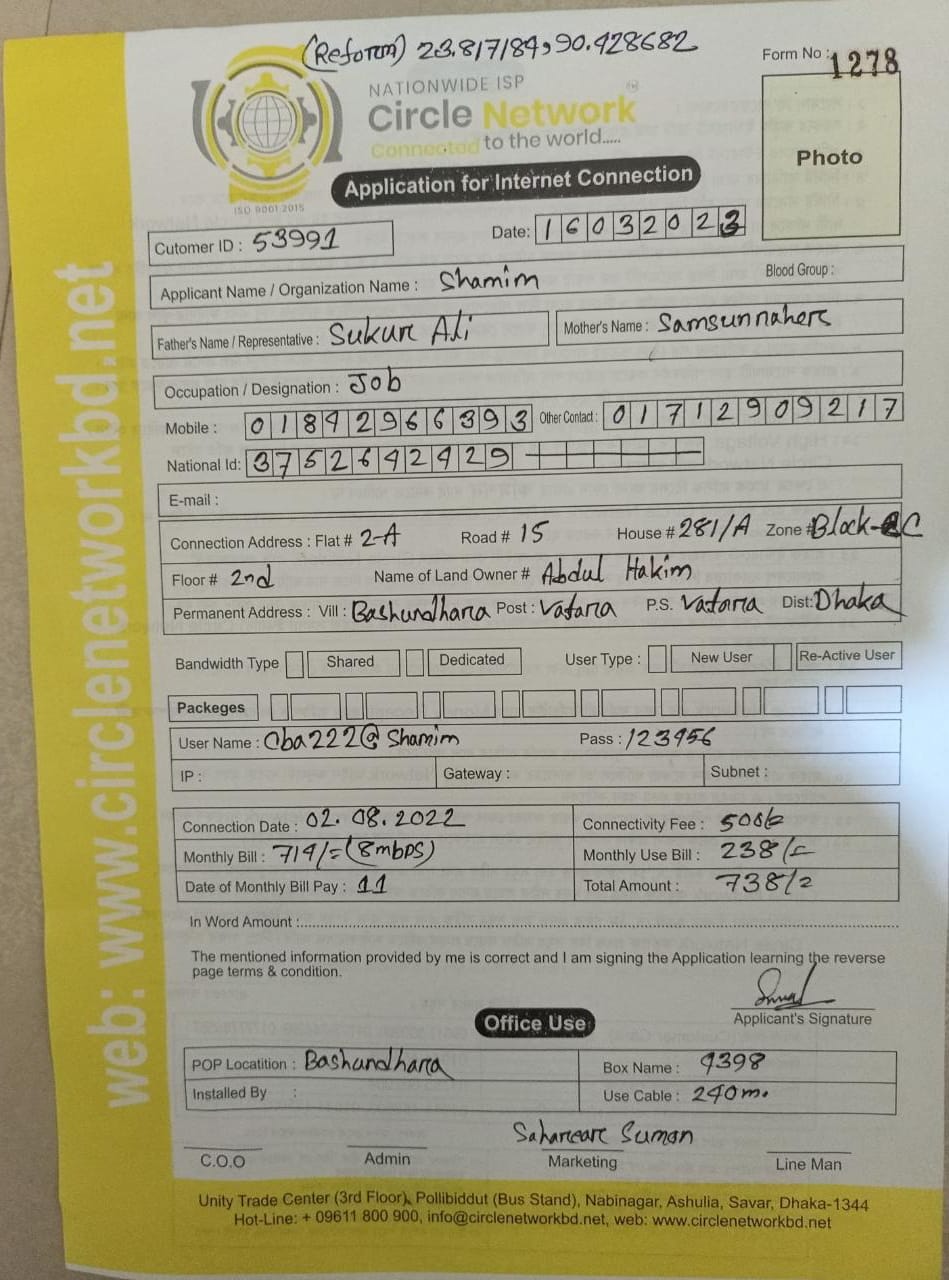 (Reform) 23.817184, 90.428682
Form No : 1278
NATIONWIDE ISP
Circle Network
Connected to the world.....
ISO 9001:2015
Photo
Application for Internet Connection
Cutomer ID : 53991
Date: 16032023
Applicant Name / Organization Name : Shamim Blood Group :
Father's Name / Representative : Sukur Ali Mother's Name : Samsunnaher
Occupation / Designation : Job
Mobile : 01842966393 Other Contact : 01712909217
National Id: 3752642429
E-mail :
Connection Address : Flat # 2-A Road # 15 House # 281/A Zone # Block-C
Floor # 2nd Name of Land Owner # Abdul Hakim
Permanent Address : Vill : Bashundhara Post : Vatara P.S. Vatara Dist: Dhaka
Bandwidth Type Shared Dedicated User Type : New User Re-Active User
Packeges
User Name : Cba222@Shamim Pass : 123456
IP : Gateway : Subnet :
Connection Date : 02.08.2022 Connectivity Fee : 500/=
Monthly Bill : 714/= (8mbps) Monthly Use Bill : 238/=
Date of Monthly Bill Pay : 11 Total Amount : 738/=
In Word Amount :
The mentioned information provided by me is correct and I am signing the Application learning the reverse
page terms & condition.
Applicant's Signature
Office Use
POP Locatition : Bashundhara Box Name : 4398
Installed By : Use Cable : 240m.
Sahareare Suman
C.O.O Admin Marketing Line Man
Unity Trade Center (3rd Floor), Pollibiddut (Bus Stand), Nabinagar, Ashulia, Savar, Dhaka-1344
Hot-Line: + 09611 800 900, info@circlenetworkbd.net, web: www.circlenetworkbd.net
web: www.circlenetworkbd.net